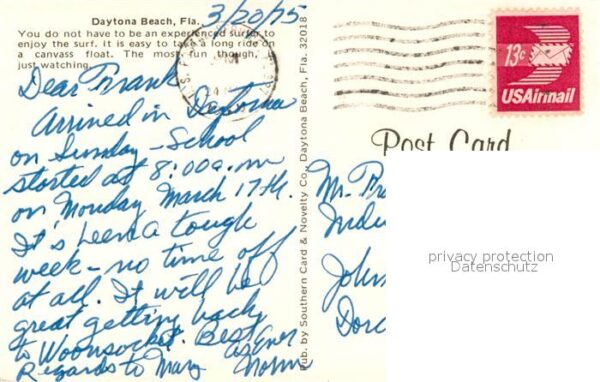 Daytona Beach, Fla.
3/20/75
You do not have to be an experienced surfer to
enjoy the surf. It is easy to take a long ride on
a canvass float. The most fun though, is
just watching.
Dear Frank
Arrived in Daytona
on Sunday - School
started at 8:00 a.m
on Monday March 17th.
It's been a tough
week - no time off
at all. It will be
great getting back
to Woonsocket. Best
Regards to Mary As Ever
Norm
Pub. by Southern Card & Novelty Co., Daytona Beach, Fla. 32018
13c
USAirmail
Post Card
Mr. Fra
Indu
John
Dorc
privacy protection
Datenschutz